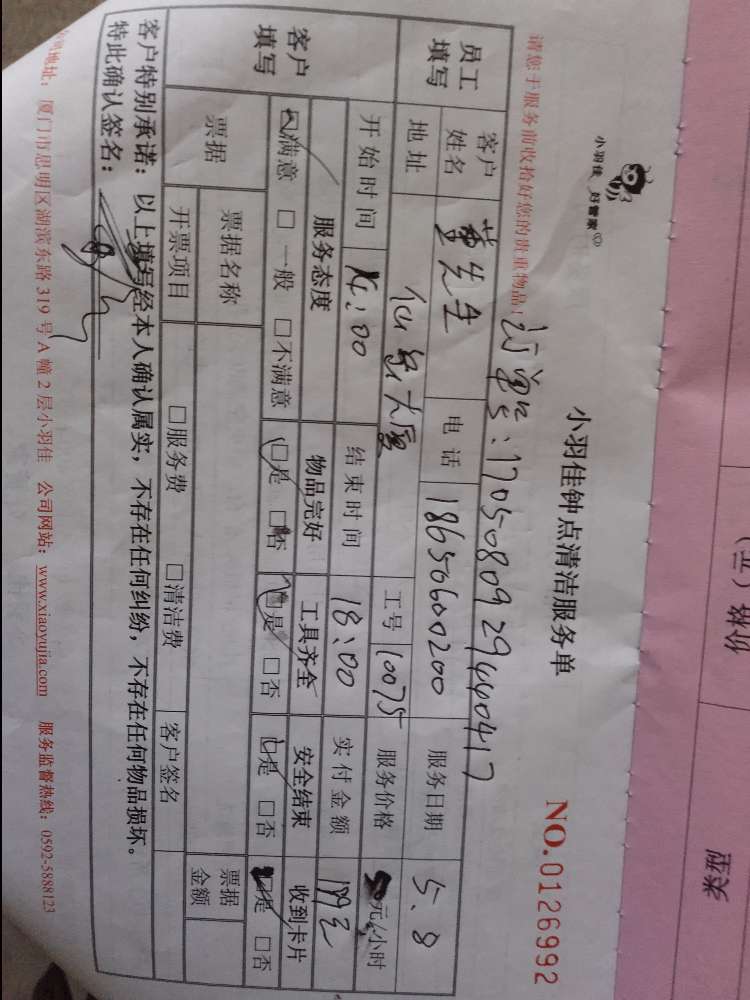 小羽佳 好管家
小羽佳钟点清洁服务单
NO.0126992
请您于服务前收拾好您的贵重物品！
订单号：17050809294440417
员工填写
客户姓名 先生 电话 18650600200 服务日期 5.8
地址 大厦 工号 10075 服务价格 元/小时
客户填写
开始时间 14:00 结束时间 18:00 实付金额
服务态度 物品完好 工具齐全 安全结束 收到卡片
☑满意 □一般 □不满意 ☑是 □否 ☑是 □否 ☑是 □否 ☑是 □否
票据 票据名称 票据金额
开票项目 □服务费 □清洁费 客户签名
客户特别承诺：以上填写经本人确认属实，不存在任何纠纷，不存在任何物品损坏。
特此确认签名：
地址：厦门市思明区湖滨东路319号A幢2层小羽佳 公司网站：www.xiaoyujia.com 服务监督热线：0592-5888123